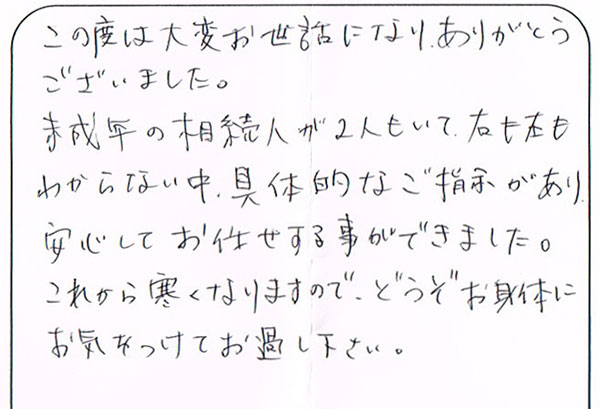 この度は大変お世話になり、ありがとう
ございました。
未成年の相続人が2人もいて、右も左も
わからない中、具体的なご指示があり、
安心してお任せする事ができました。
これから寒くなりますので、どうぞお身体に
お気をつけてお過し下さい。